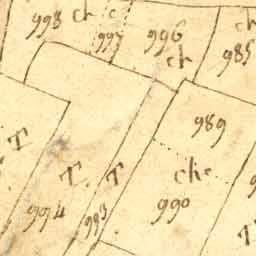 998 ch c
997 996 ch
ch
985
989
T
T T ch.
994 993 990
T